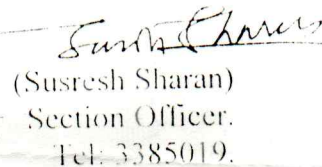 (Susresh Sharan)
Section Officer.
Tel: 3385019.